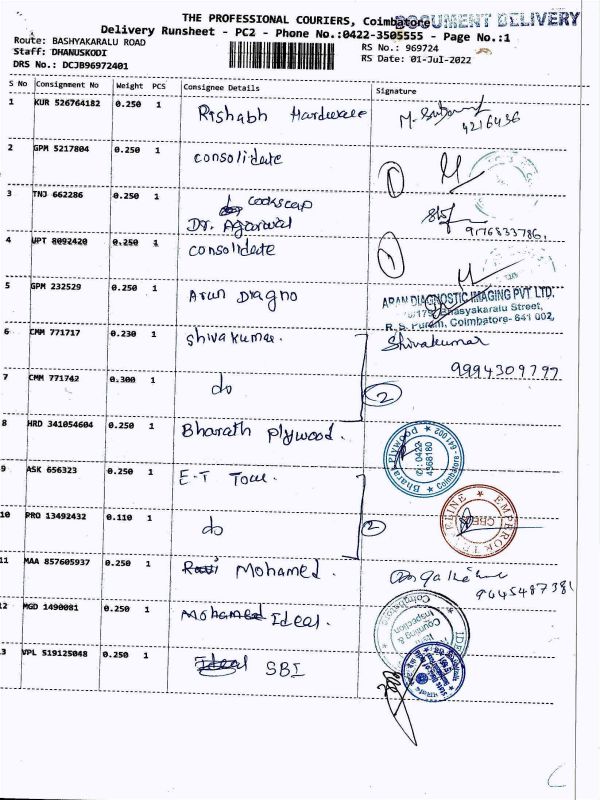 THE PROFESSIONAL COURIERS, Coimbatore
DOCUMENT DELIVERY
Delivery Runsheet - PC2 - Phone No.:0422-3505555 - Page No.:1
Route: BASHYAKARALU ROAD
RS No.: 969724
Staff: DHANUSKODI
RS Date: 01-Jul-2022
DRS No.: DCJB96972401
S No Consignment No Weight PCS Consignee Details Signature
1 KUR 526764182 0.250 1 Rishabh Hardware
4216436
2 GPM 5217804 0.250 1 consolidate
3 TNJ 662286 0.250 1
Dr. Agarwal
9176833786
4 UPT 8092420 0.250 1 consolidate
5 GPM 232529 0.250 1 Arun Diagno
ARAN DIAGNOSTIC IMAGING PVT LTD.
Bhasyakaralu Street,
R. S. Puram, Coimbatore- 641 002.
6 CMM 771717 0.230 1 Shivakumar. Shivakumar
9994309797
7 CMM 771742 0.300 1 do 2
8 HRD 341054604 0.250 1 Bharath plywood.
Bharat Plywood Coimbatore - 641 002
0422
4368180
9 ASK 656323 0.250 1 E-T
10 PRO 13492432 0.110 1 do 2
11 MAA 857605937 0.250 1 Mohamed.
9445487381
12 MGD 1490081 0.250 1 Mohamed Ideal.
Counting &
Inspection
13 VPL 519125048 0.250 1 Ideal SBI